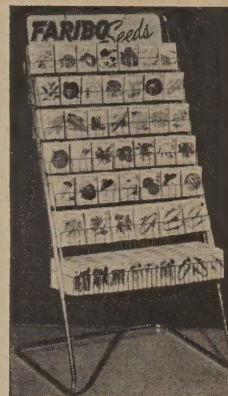 FARIBO Seeds